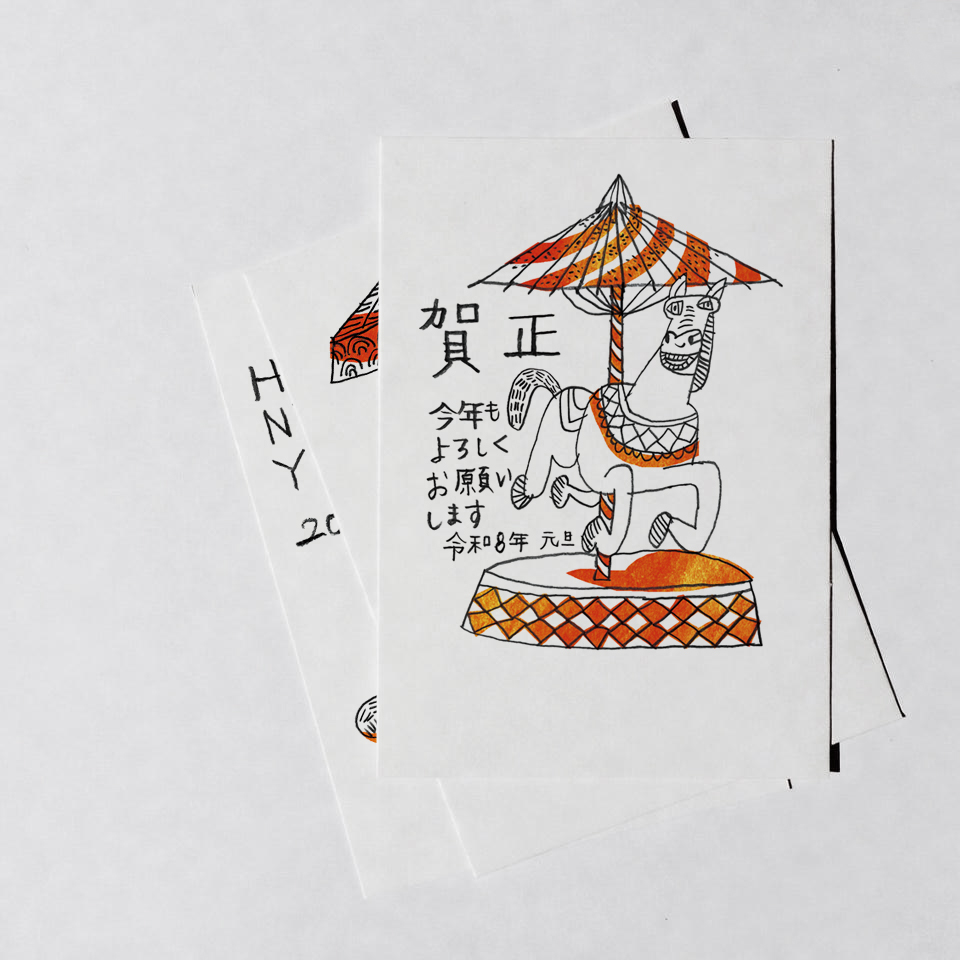 賀正
今年も
よろしく
お願い
します
令和8年 元旦
HNY